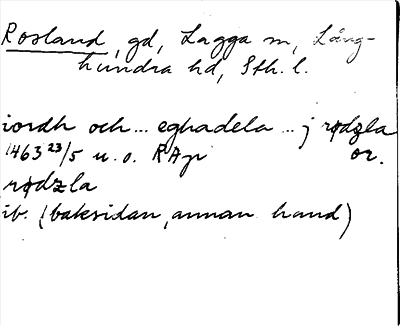 Rosland, gd, Lagga sn, Lång-
hundra hd, Sth. l.
iordh och... eghadela ... j rødzla
1463 23/5 u. o. RAp or.
rødzla
ib. (baksidan, annan hand)